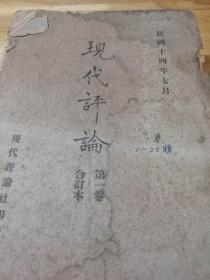 民國十四年七月
現代評論
第一卷
合訂本
1-26期
現代評論社印